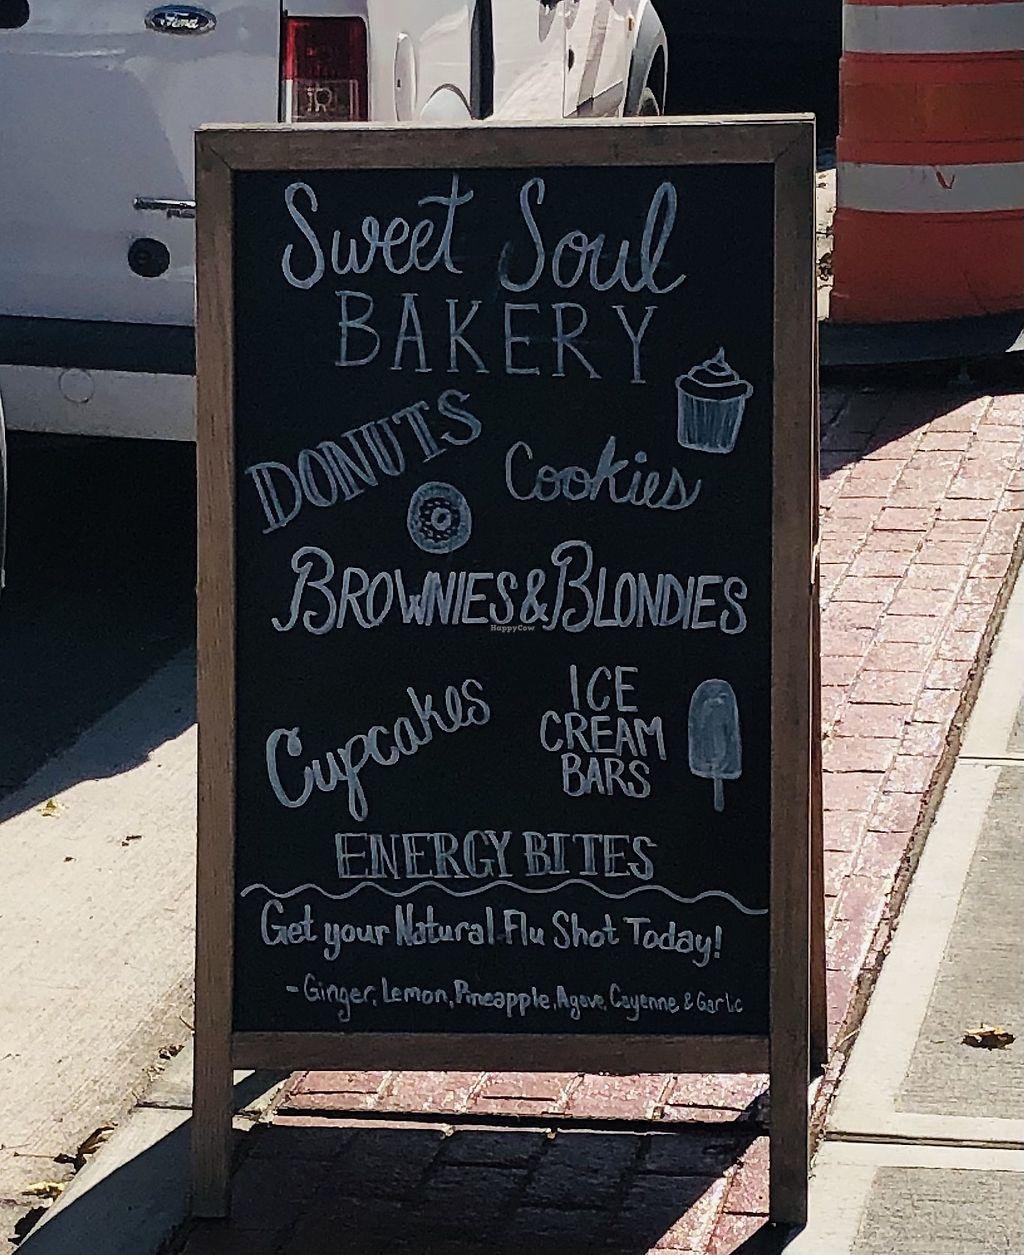 Ford
Sweet Soul
BAKERY
DONUTS
Cookies
BROWNIES & BLONDIES
HappyCow
Cupcakes
ICE
CREAM
BARS
ENERGY BITES
Get your Natural Flu Shot Today!
- Ginger, Lemon, Pineapple, Agave, Cayenne, & Garlic